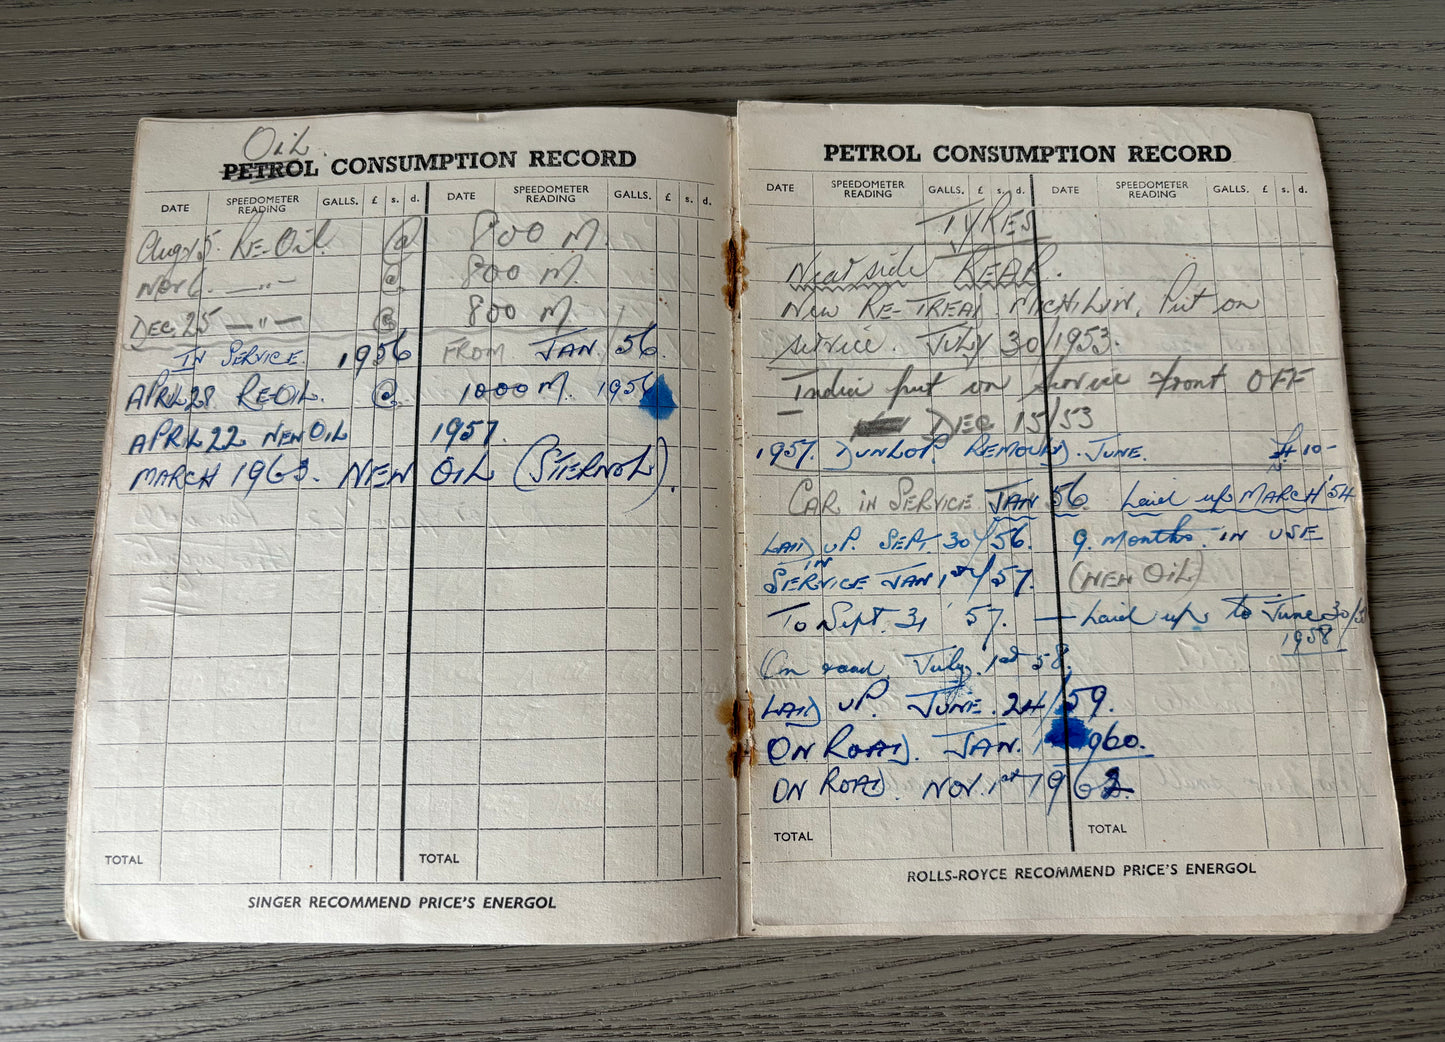 OiL
PETROL CONSUMPTION RECORD
DATE SPEEDOMETER READING GALLS. £ s. d. DATE SPEEDOMETER READING GALLS. £ s. d.
Aug 15. Re-Oil @ 800 M.
Nov 6. — " — @ 800 M.
DEC. 25 — " — @ 800 M.
IN SERVICE. 1956 FROM JAN 56.
APRIL 28 RE-OIL. @ 1000 M. 1956
APRIL 22 NEW OIL 1957.
MARCH 1963. NEW OIL (STERNOL).
TOTAL TOTAL
SINGER RECOMMEND PRICE'S ENERGOL
PETROL CONSUMPTION RECORD
DATE SPEEDOMETER READING GALLS. £ s. d. DATE SPEEDOMETER READING GALLS. £ s. d.
TYRES
Near side REAR.
New RE-TREAD MICHILIN. Put on
service. JULY 30/1953.
India put on service front OFF
— DEC 15/53
1957. DUNLOP. REMOULD. JUNE. 10-
CAR IN SERVICE JAN 56. Laid up MARCH '54
LAID UP. SEPT. 30/56. 9. months. IN USE
IN
SERVICE JAN 1st/57. (NEW OIL)
To Sept. 31 '57. — Laid up to June 30/
1958
On road. July. 1st 58.
LAID UP. JUNE. 24/59.
ON ROAD. JAN. 1 1960.
ON ROAD. NOV. 1st 1962.
TOTAL TOTAL
ROLLS-ROYCE RECOMMEND PRICE'S ENERGOL